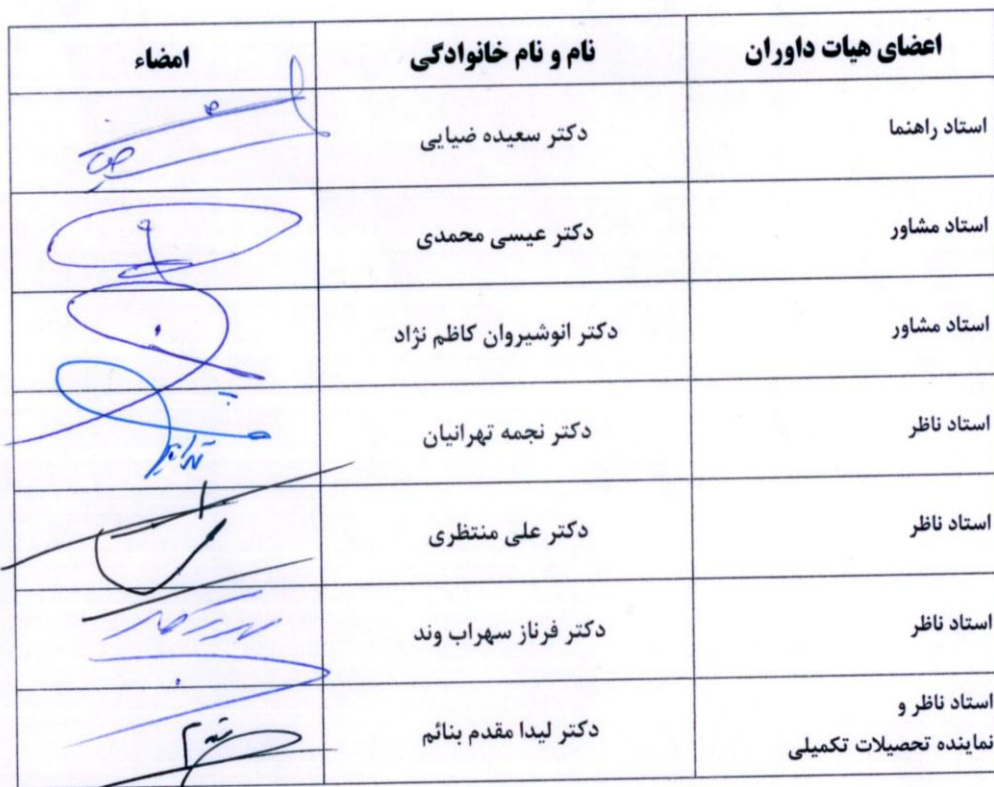 اعضای هیات داوران نام و نام خانوادگی امضاء
استاد راهنما دکتر سعیده ضیایی
استاد مشاور دکتر عیسی محمدی
استاد مشاور دکتر انوشیروان کاظم نژاد
استاد ناظر دکتر نجمه تهرانیان
استاد ناظر دکتر علی منتظری
استاد ناظر دکتر فرناز سهراب وند
استاد ناظر و
نماینده تحصیلات تکمیلی دکتر لیدا مقدم بنائم